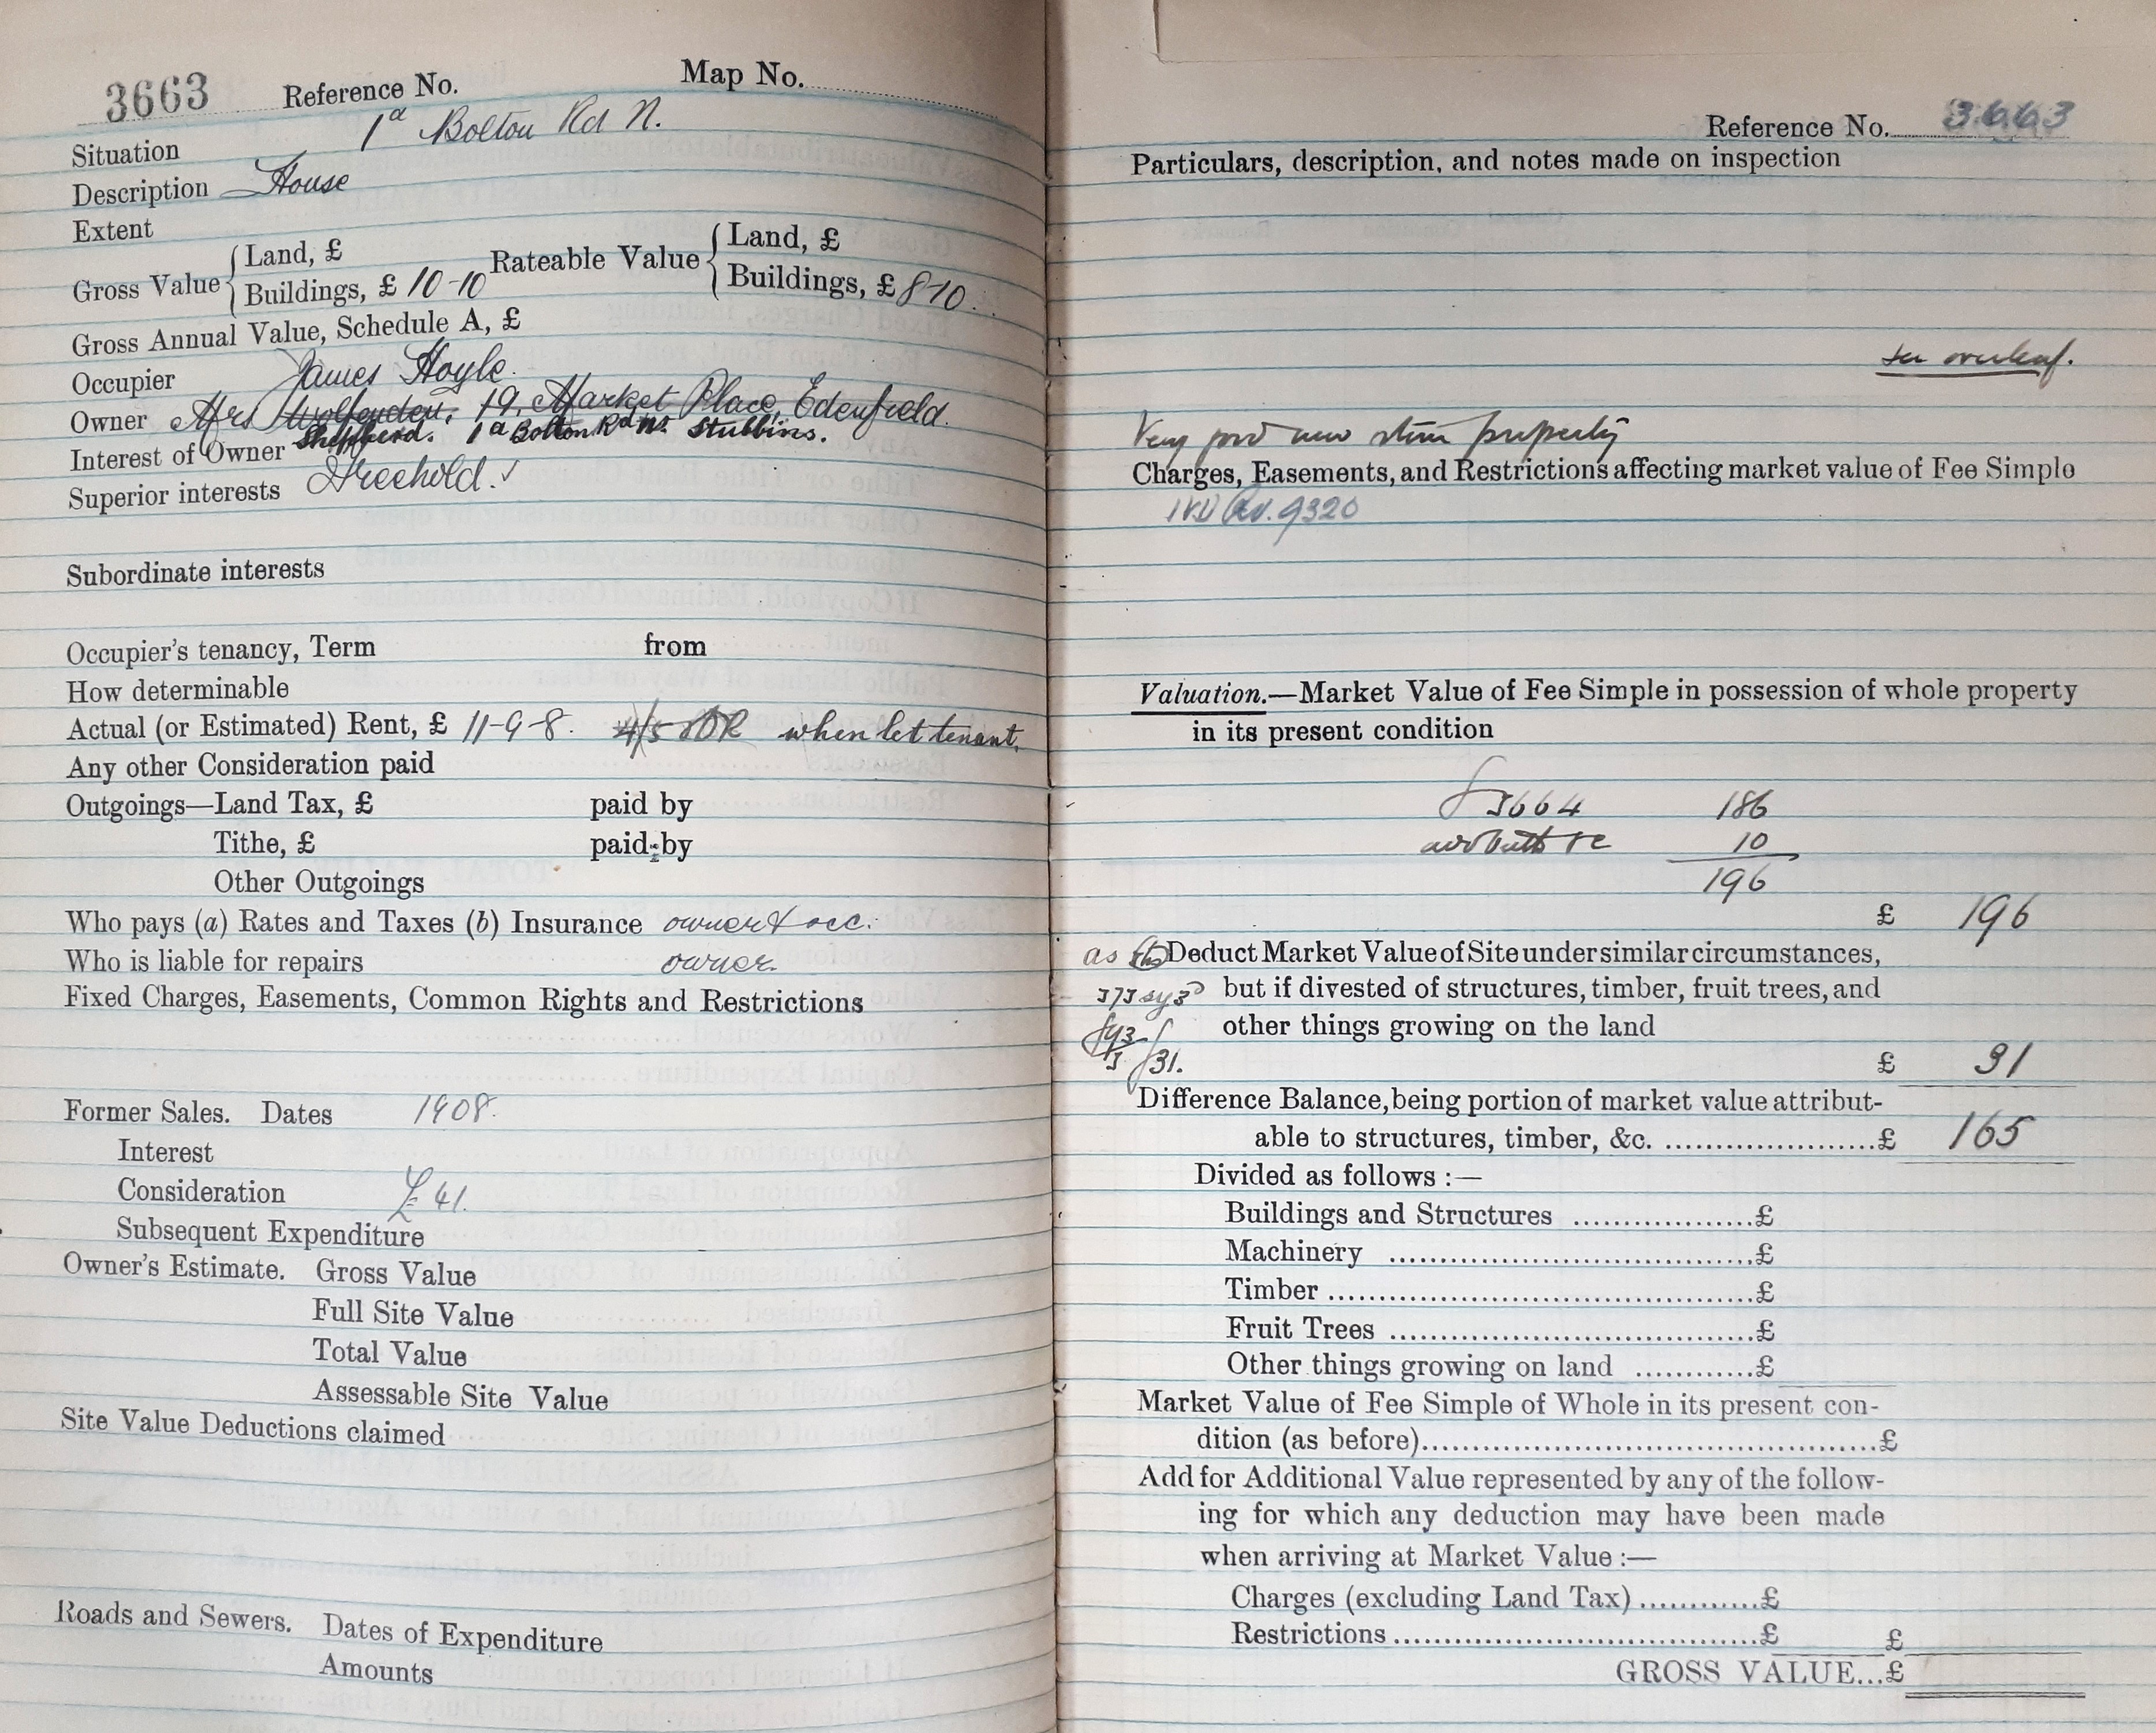 3663 Reference No. Map No.
Situation 1a Bolton Rd N.
Description House
Extent
Gross Value { Land, £
Buildings, £ 10-10
Rateable Value { Land, £
Buildings, £ 8-10
Gross Annual Value, Schedule A, £
Occupier James Hoyle
Owner Mrs Wolfenden. 19, Market Place, Edenfield.
Shepherd. 1a Bolton Rd N. Stubbins.
Interest of Owner
Freehold. ✓
Superior interests
Subordinate interests
Occupier's tenancy, Term from
How determinable
Actual (or Estimated) Rent, £ 11-9-8. 4/5 when let tenant.
Any other Consideration paid
Outgoings—Land Tax, £ paid by
Tithe, £ paid by
Other Outgoings
Who pays (a) Rates and Taxes (b) Insurance owner & occ.
Who is liable for repairs owner.
Fixed Charges, Easements, Common Rights and Restrictions
Former Sales. Dates 1908.
Interest
Consideration £41.
Subsequent Expenditure
Owner's Estimate. Gross Value
Full Site Value
Total Value
Assessable Site Value
Site Value Deductions claimed
Roads and Sewers. Dates of Expenditure
Amounts
Reference No. 3663
Particulars, description, and notes made on inspection
see overleaf.
Very good new stone property
Charges, Easements, and Restrictions affecting market value of Fee Simple
9320
Valuation.—Market Value of Fee Simple in possession of whole property
in its present condition
3664 186
10
196
£ 196
Deduct Market Value of Site under similar circumstances,
but if divested of structures, timber, fruit trees, and
other things growing on the land
£ 31
Difference Balance, being portion of market value attribut-
able to structures, timber, &c. ....................£ 165
Divided as follows :—
Buildings and Structures ...................£
Machinery ......................................£
Timber ............................................£
Fruit Trees ......................................£
Other things growing on land ............£
Market Value of Fee Simple of Whole in its present con-
dition (as before)................................................£
Add for Additional Value represented by any of the follow-
ing for which any deduction may have been made
when arriving at Market Value :—
Charges (excluding Land Tax) ............£
Restrictions .......................................£ £
GROSS VALUE...£